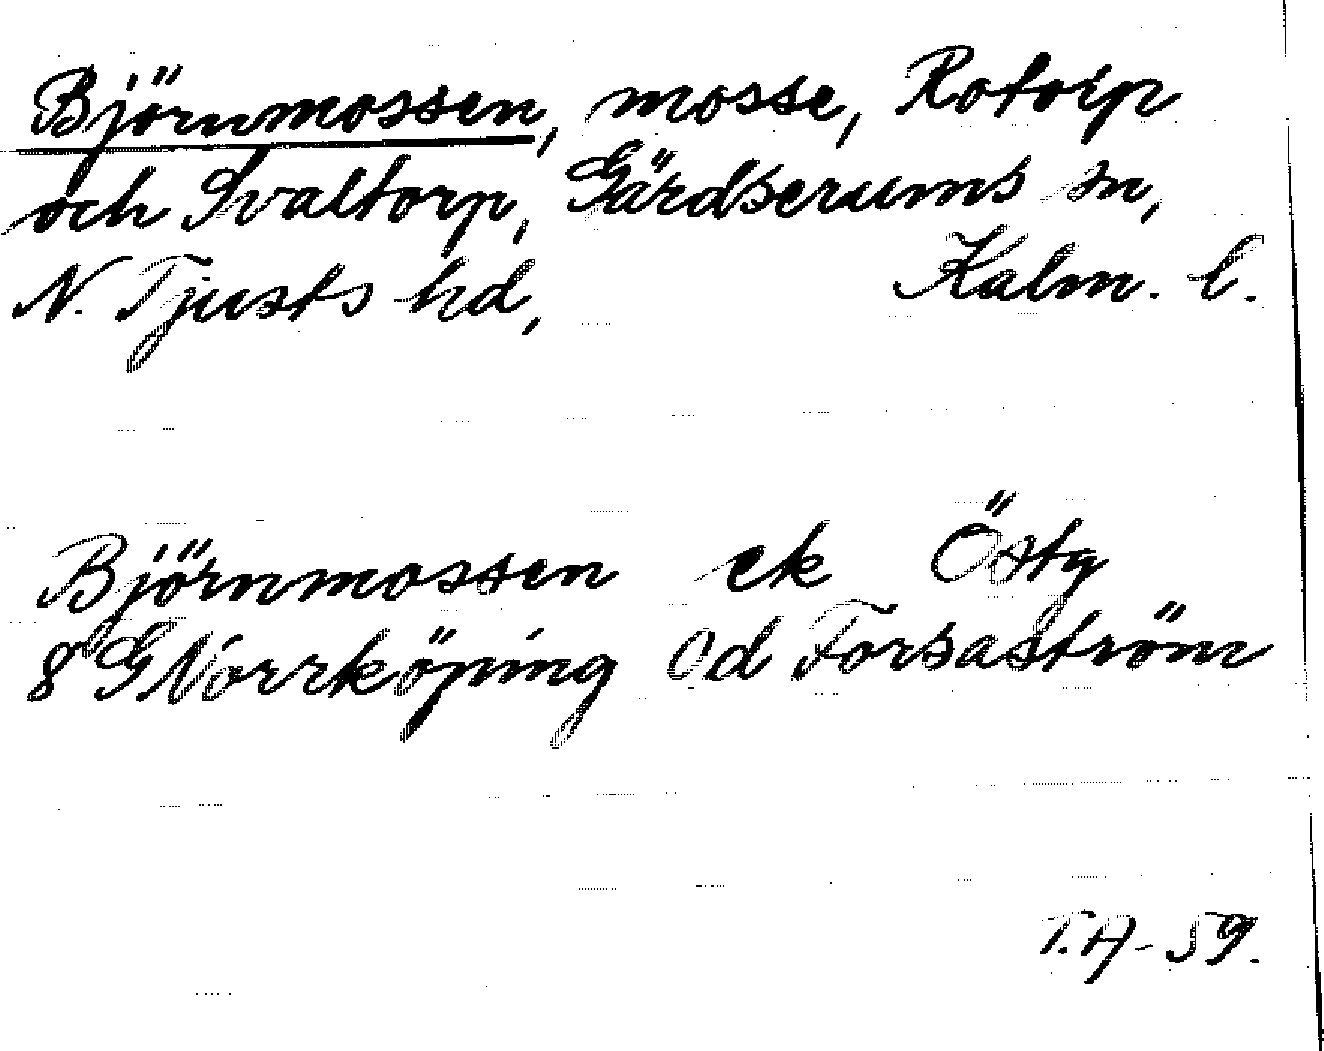 Björnmossen, mosse, Rotorp
och Svaltorp, Gärdserums sn,
N. Tjusts hd, Kalm. l.
Björnmossen ek Östg
8 G Norrköping Od Forsaström
T.A - 59.